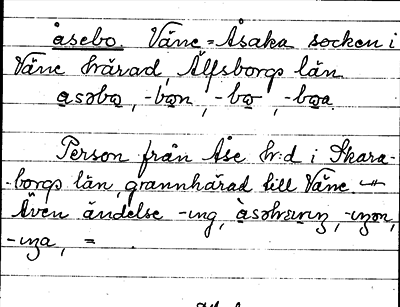 åsebo. Väne-Åsaka socken i
Väne härad, Älfsborgs län
ɑsəbɷ, -bɷn, -bɷ, -bɷa
Person från Åse h:d i Skara-
borgs län, grannhärad till Väne.
Även ändelse -ing,
=